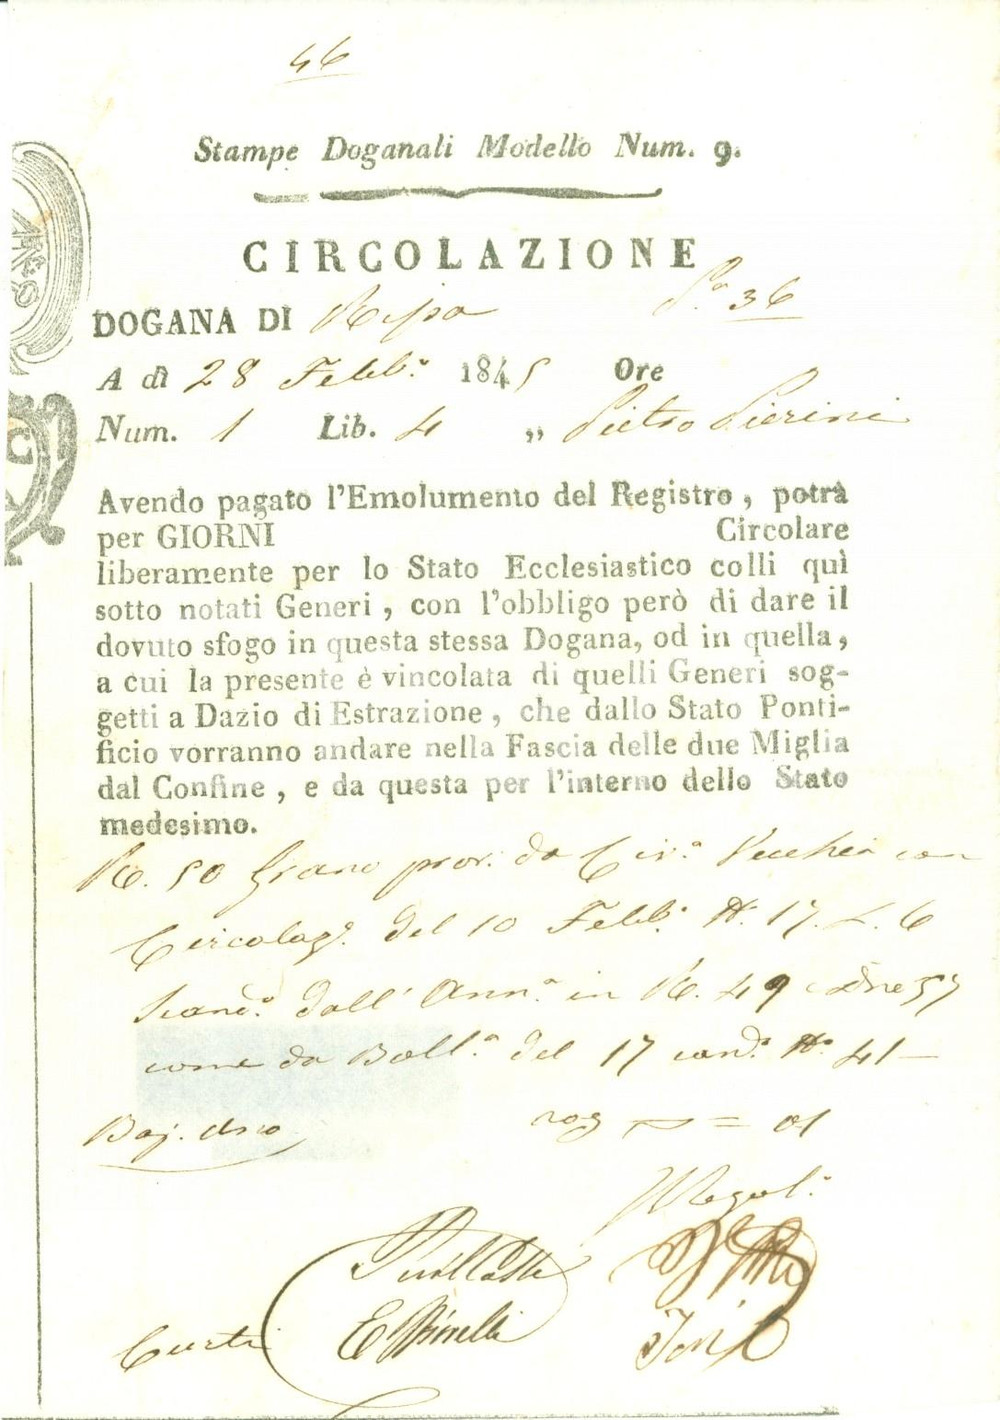 46
Stampe Doganali Modello Num. 9.
CIRCOLAZIONE
DOGANA DI Ripa Pa. 36
A dì 28 Febb.º 1845 Ore
Num. 1 Lib. 4 „ Pietro Pierini
Avendo pagato l'Emolumento del Registro, potrà
per GIORNI Circolare
liberamente per lo Stato Ecclesiastico colli quì
sotto notati Generi, con l'obbligo però di dare il
dovuto sfogo in questa stessa Dogana, od in quella,
a cui la presente è vincolata di quelli Generi sog-
getti a Dazio di Estrazione, che dallo Stato Ponti-
ficio vorranno andare nella Fascia delle due Miglia
dal Confine, e da questa per l'interno dello Stato
medesimo.
R. 50 Grano prov. da Civ.ª Vecchia con
Circolaz.e del 10 Febb.º N.º 17. L. 6
dall' Ann.ª in R. 49
come da Boll.ª del 17 N.º 41
Baj. Uno = 01